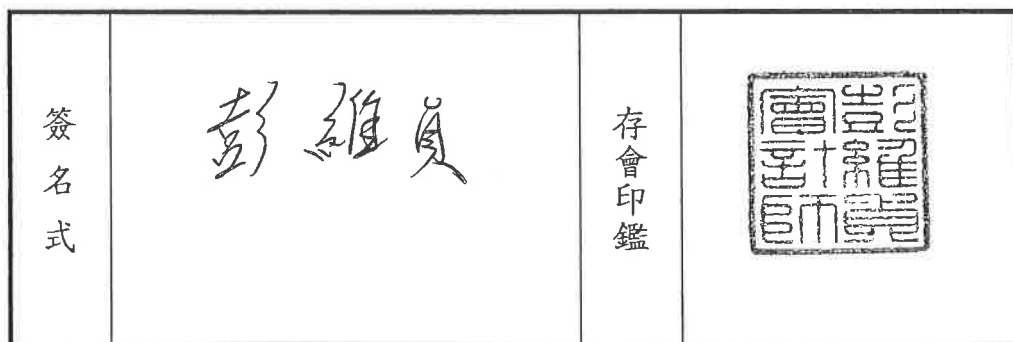 簽名式
彭維貞
存會印鑑
彭維貞
會計師